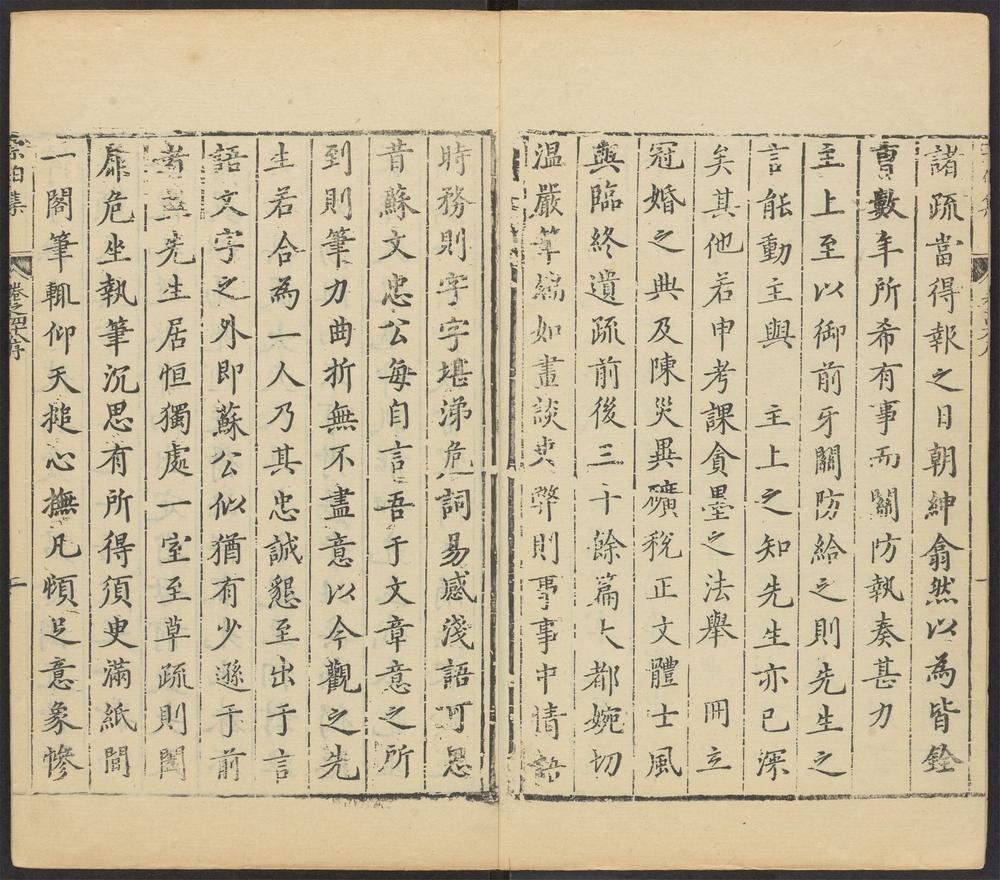 諸疏當得報之日朝紳翕然以為皆銓
曹數年所希有事而關防執奏甚力
主上至以御前牙關防給之則先生之
言能動主與　主上之知先生亦已深
矣其他若申考課貪墨之法舉　冊立
冠婚之典及陳災異礦稅正文體士風
與臨終遺疏前後三十餘篇大都婉切
溫嚴筆端如畫談史弊則事事中情語
時務則字字堪涕危詞易感淺語可思
昔蘇文忠公每自言吾于文章意之所
到則筆力曲折無不盡意以今觀之先
生若合為一人乃其忠誠懇至出于言
語文字之外即蘇公似猶有少遜于前
者先生居恒獨處一室至草疏則闔
扉危坐執筆沉思有所得須臾滿紙間
一閣筆輒仰天搥心撫几頓足意象慘
宗伯集
卷之四十序